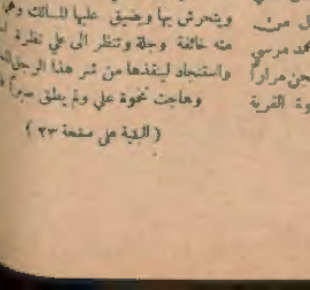 ويتحرش بها ويضيق عليها المسالك وهي
منه خائفة وجلة وتنظر الى علي نظرة
واستنجاد لينقذها من شر هذا الرجل
وهاجت نخوة علي ولم يطق صبراً
( البقية على صفحة ٢٣ )
ل من
محمد مرسي
جن مراراً
وة القرية